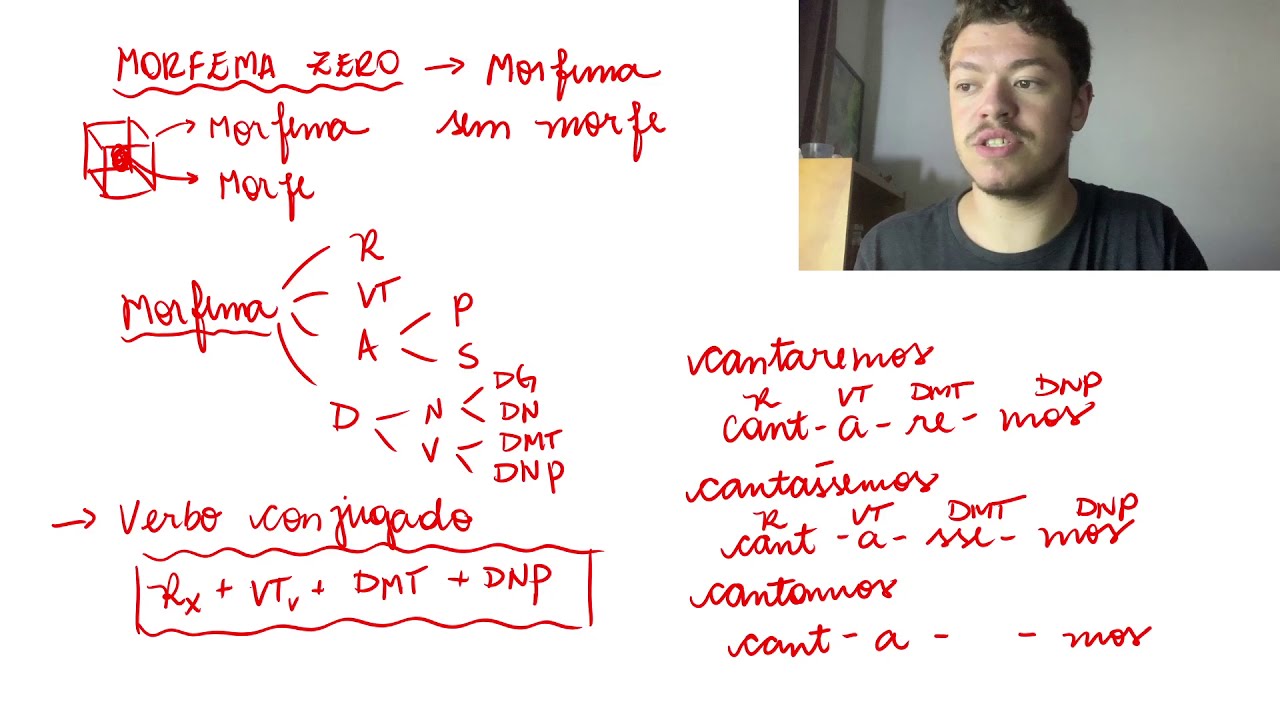 MORFEMA ZERO → Morfema
sem morfe
→ Morfema
→ Morfe
Morfema
R
VT
A
P
S
D
N
DG
DN
V
DMT
DNP
→ Verbo conjugado
Rx + VTv + DMT + DNP
cantaremos
R VT DMT DNP
cant - a - re - mos
cantássemos
R VT DMT DNP
cant - a - sse - mos
cantamos
cant - a - - mos